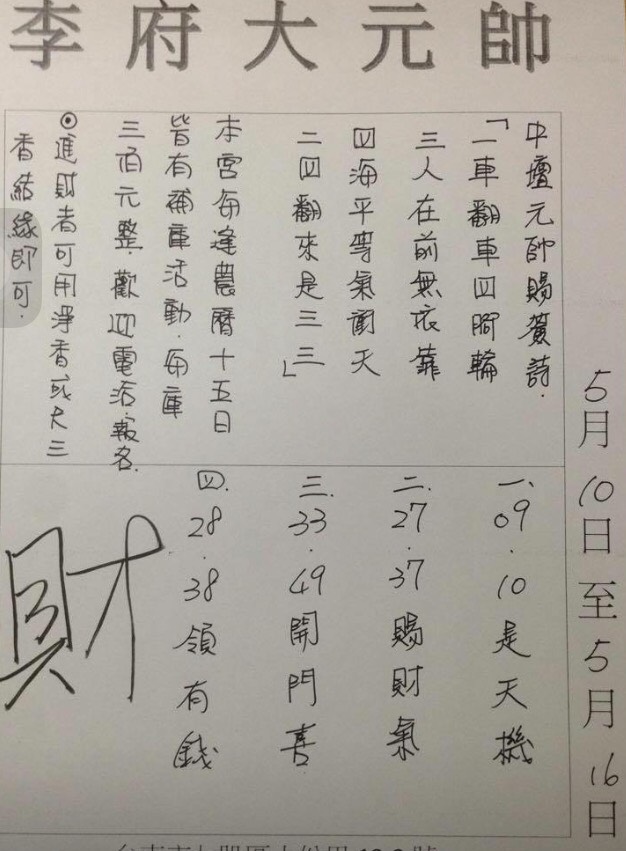 李府大元帥
5月10日至5月16日
中壇元帥賜贊詩.
「一車翻車四腳輪
三人在前無依靠
四海平等氣衝天
二四翻來是三三」
本宮每逢農曆十五日
皆有補庫活動.每庫
三佰元整.歡迎電洽.報名.
⊙進財者可用淨香或尺三
香結緣即可.
一、09.10是天機
二.27.37賜財氣
三.33.49開門喜
四.28.38領有錢
財